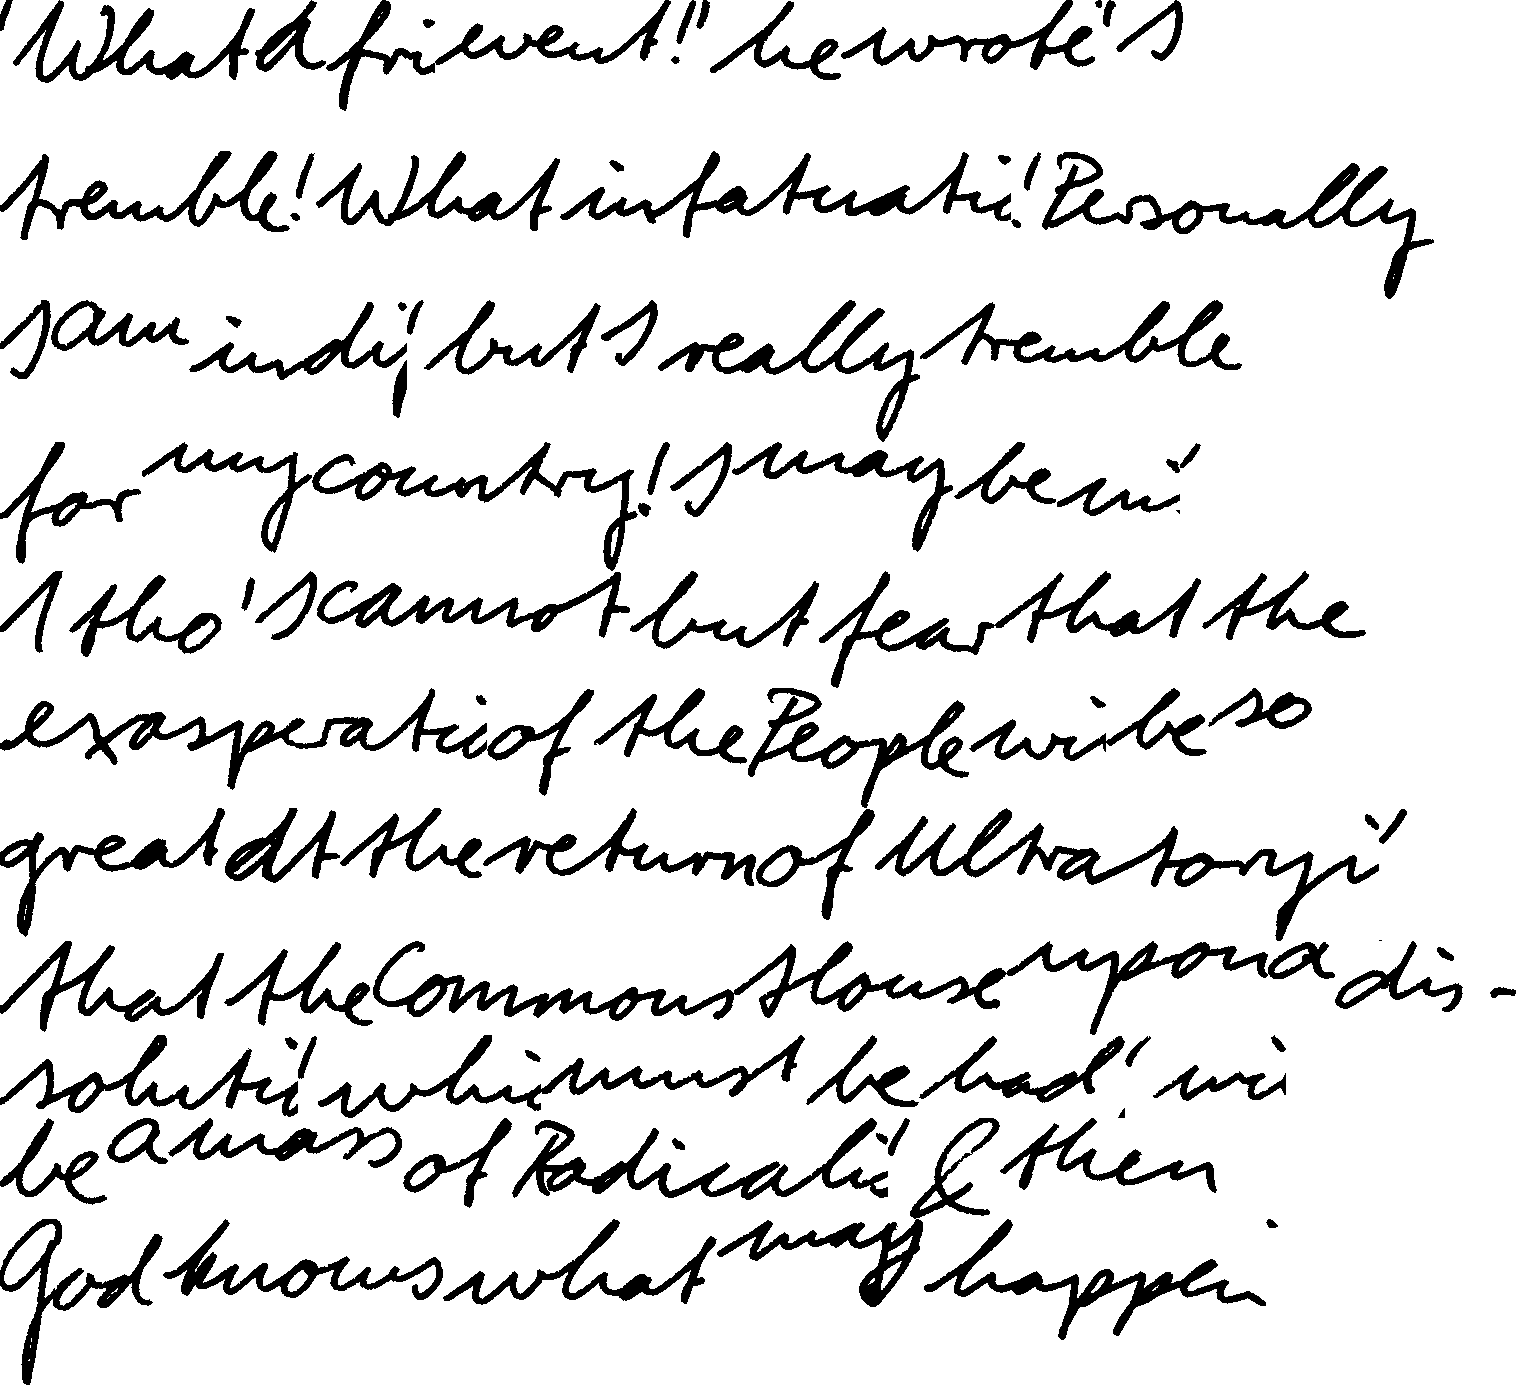 "What a fri event!" he wrote "I
tremble! What infatuati! Personally
I am indi, but I really tremble
for my country! I may be
tho' I cannot but fear that the
exasperati of the People wi be so
great at the return of Ultra toryi
that the Commons House upon a dis-
soluti, whi must be had, wi
be a mass of Radicali & then
God knows what may happen